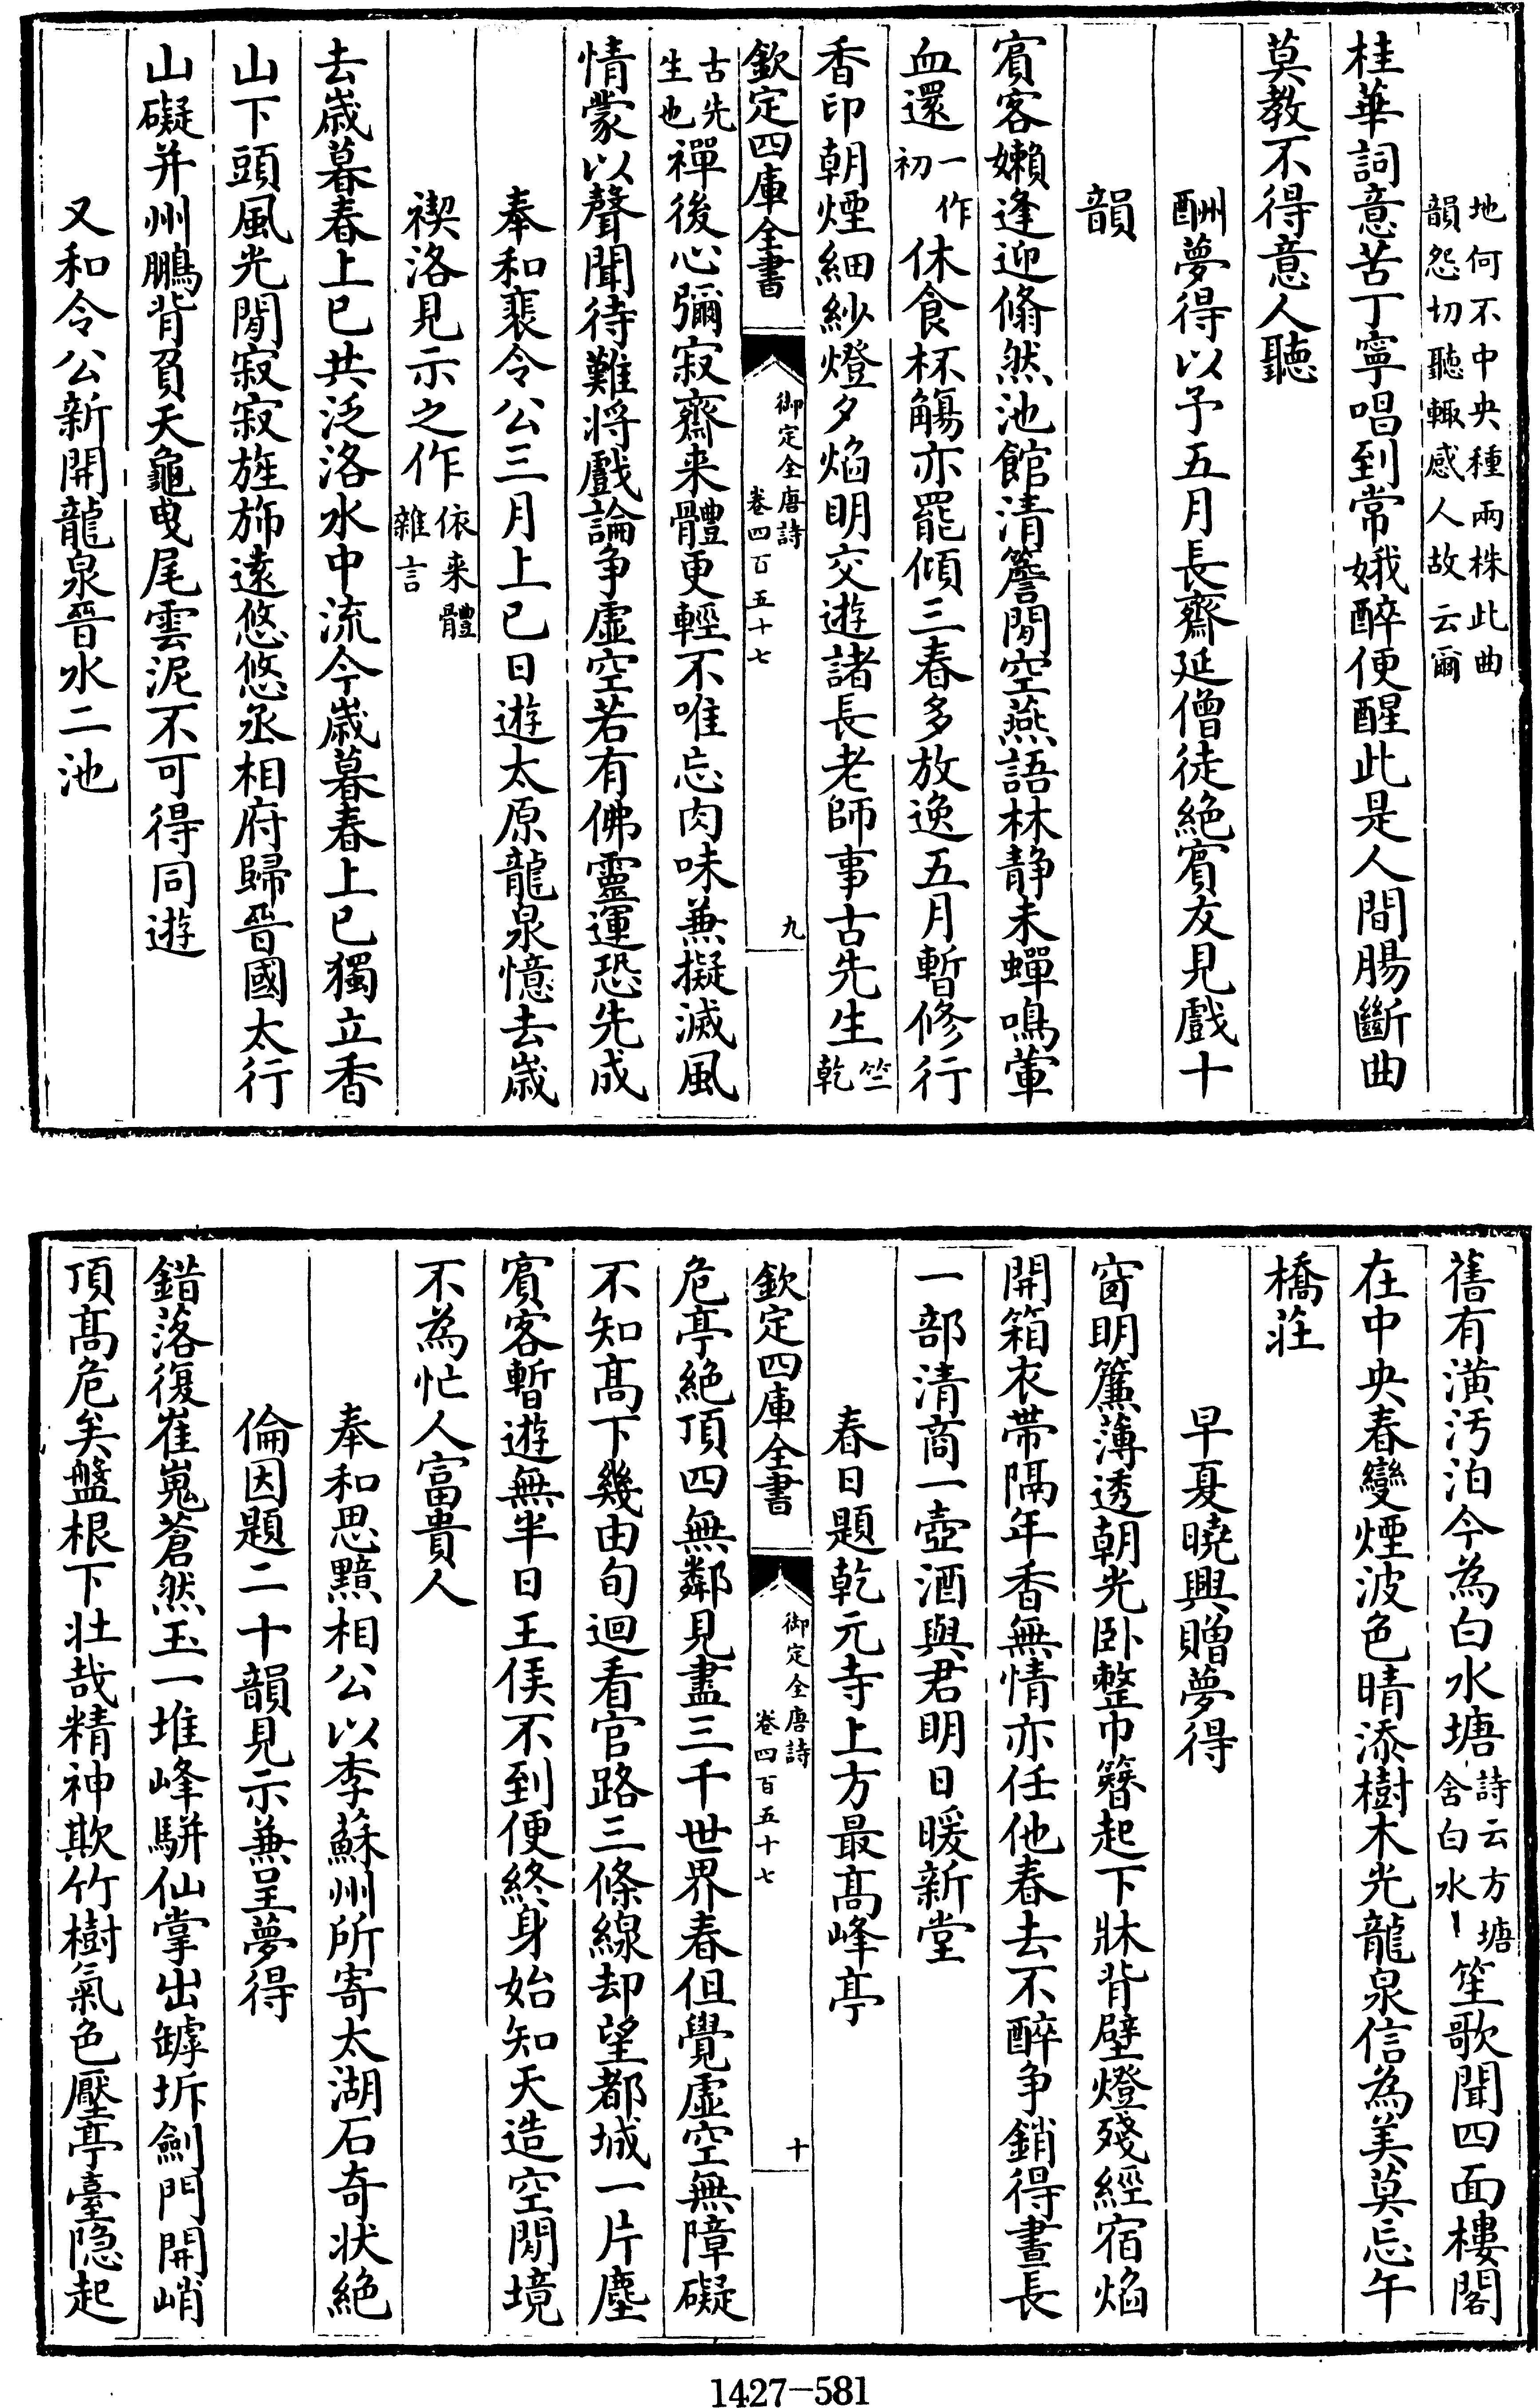 地何不中央種兩株此曲
韻怨切聽輒感人故云爾
桂華詞意苦丁寧唱到常娥醉便醒此是人間腸斷曲
莫教不得意人聽
酬夢得以予五月長齋延僧徒絶賓友見戲十
韻
賓客嬾逢迎翛然池館清簷閒空燕語林静未蟬鳴葷
血還一作初休食杯觴亦罷傾三春多放逸五月暫修行
香印朝煙細紗燈夕焰明交遊諸長老師事古先生竺乾
欽定四庫全書
御定全唐詩
卷四百五十七
九
古先生也禪後心彌寂齋来體更輕不唯忘肉味兼擬滅風
情蒙以聲聞待難將戲論争虚空若有佛靈運恐先成
奉和裴令公三月上巳日遊太原龍泉憶去歲
禊洛見示之作依来體雜言
去歲暮春上巳共泛洛水中流今歲暮春上巳獨立香
山下頭風光閒寂寂旌斾遠悠悠丞相府歸晉國太行
山礙并州鵬背負天龜曵尾雲泥不可得同遊
又和令公新開龍泉晉水二池
舊有潢汚泊今為白水塘詩云方塘舍白水笙歌聞四面樓閣
在中央春變煙波色晴添樹木光龍泉信為美莫忘午
橋莊
早夏曉興贈夢得
窗明簾薄透朝光卧整巾簪起下牀背壁燈殘經宿焰
開箱衣帶隔年香無情亦任他春去不醉争銷得晝長
一部清商一壺酒與君明日暖新堂
春日題乾元寺上方最髙峰亭
欽定四庫全書
御定全唐詩
卷四百五十七
十
危亭絶頂四無鄰見盡三千世界春但覺虚空無障礙
不知髙下幾由旬迴看官路三條線却望都城一片塵
賓客暫遊無半日王侯不到便終身始知天造空閒境
不為忙人富貴人
奉和思黯相公以李蘇州所寄太湖石奇状絶
倫因題二十韻見示兼呈夢得
錯落復崔嵬蒼然玉一堆峰駢仙掌出罅坼劍門開峭
頂髙危矣盤根下壯哉精神欺竹樹氣色壓亭臺隐起
1427-581